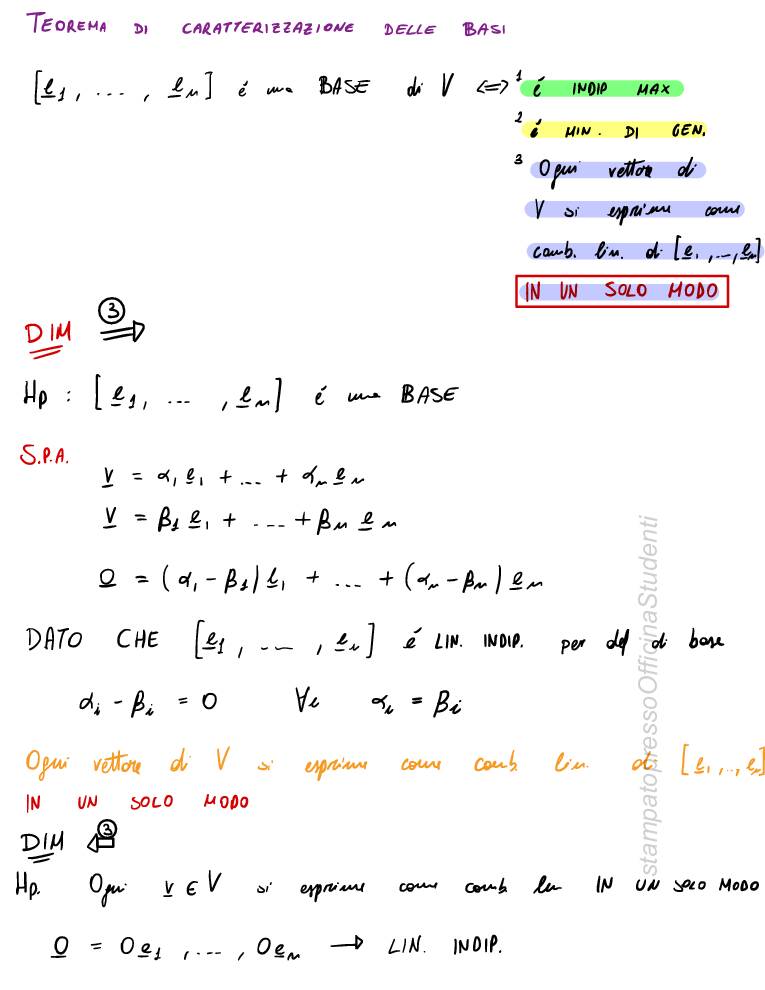 TEOREMA DI CARATTERIZZAZIONE DELLE BASI
[e1, ... , en] é una BASE di V <=> 1 é INDIP MAX
2 é MIN. DI GEN.
3 Ogni vettore di
V si esprime come
comb. lin. di [e1, ..., en]
IN UN SOLO MODO
DIM ③ ⟹
Hp : [e1, ... , en] é una BASE
S.P.A.
v = α1 e1 + ... + αn en
v = β1 e1 + ... + βn en
0 = (α1 - β1) e1 + ... + (αn - βn) en
DATO CHE [e1, ... , en] é LIN. INDIP. per def di base
αi - βi = 0 ∀i αi = βi
Ogni vettore di V si esprime come comb. lin. di [e1, .., en]
IN UN SOLO MODO
DIM ③ ⟸
Hp. Ogni v ∈ V si esprime come comb lin IN UN SOLO MODO
0 = 0e1 , ... , 0en → LIN. INDIP.
stampatopressoOfficinaStudenti